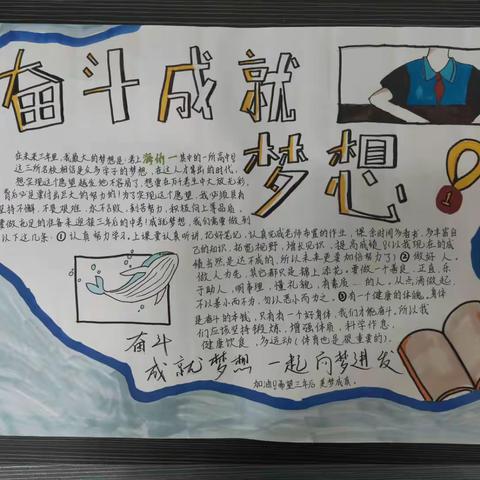 奋斗成就
梦想
在未来三年里，我最大的梦想是：考上
一集中的一所高中！
这三所名校相信是众多学子的梦想，在这人才辈出的时代，
想实现这个愿望越发地不容易了，想要在万千考生中大放光彩，
背后必是要付出巨大的努力的！为了实现这个愿望，我必须具有
坚持不懈，不畏艰难，永不言败，刻苦努力，积极向上等品质，
要做充足的准备来迎接三年后的中考！成就梦想，我们需要做到
以下这几条：①认真努力学习，上课要认真听讲，记好笔记，认真完成老师布置的作业，课余时间多看书，多丰富自
己的知识，拓宽视野，增长见识，提高成绩（以我现在的成
绩当然是达不成的，所以未来更要加倍努力了）②做好人。
做人为先，其它都只是锦上添花。要做一个善良，正直，乐
于助人，明事理，懂礼貌，有素质…的人，从点滴做起，
不以善小而不为，勿以恶小而为之。③有一个健康的体魄。身体
是奋斗的本钱，只有有一个好身体，我们才能奋斗，所以我
们应该坚持锻炼，增强体质，科学作息，
健康饮食，多运动（体育也是很重要的）。
奋斗
成就梦想 一起向梦进发
加油！希望三年后 美梦成真。
1